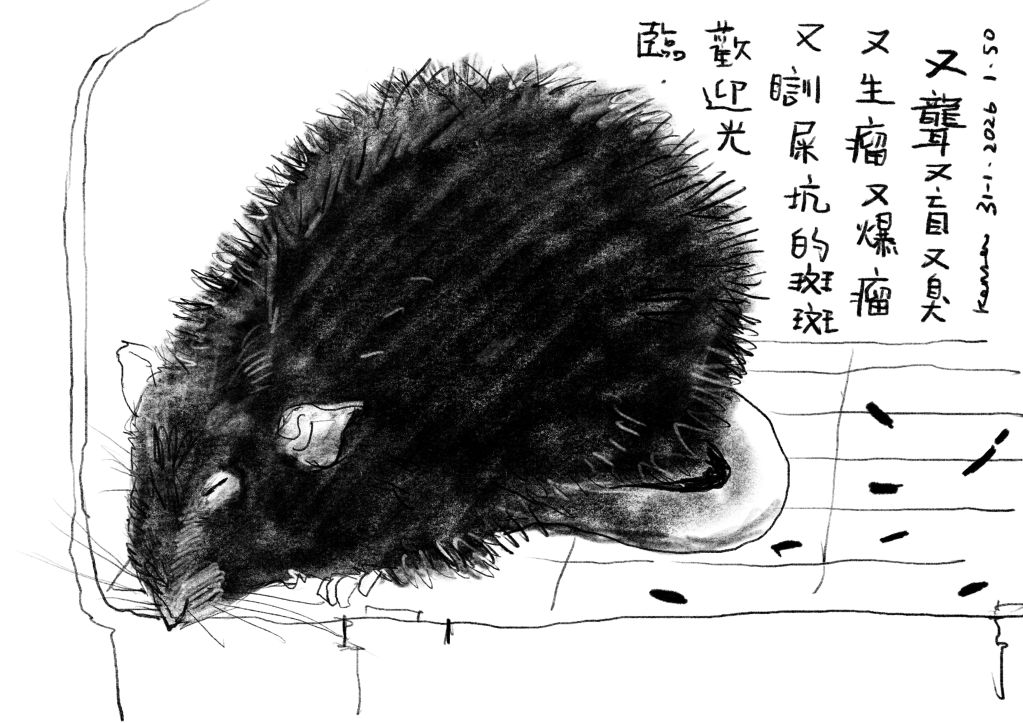 Kensen 31-1-2026 1.50
又聾又盲又臭
又生瘤又爆瘤
又瞓屎坑的斑斑
歡迎光
臨.